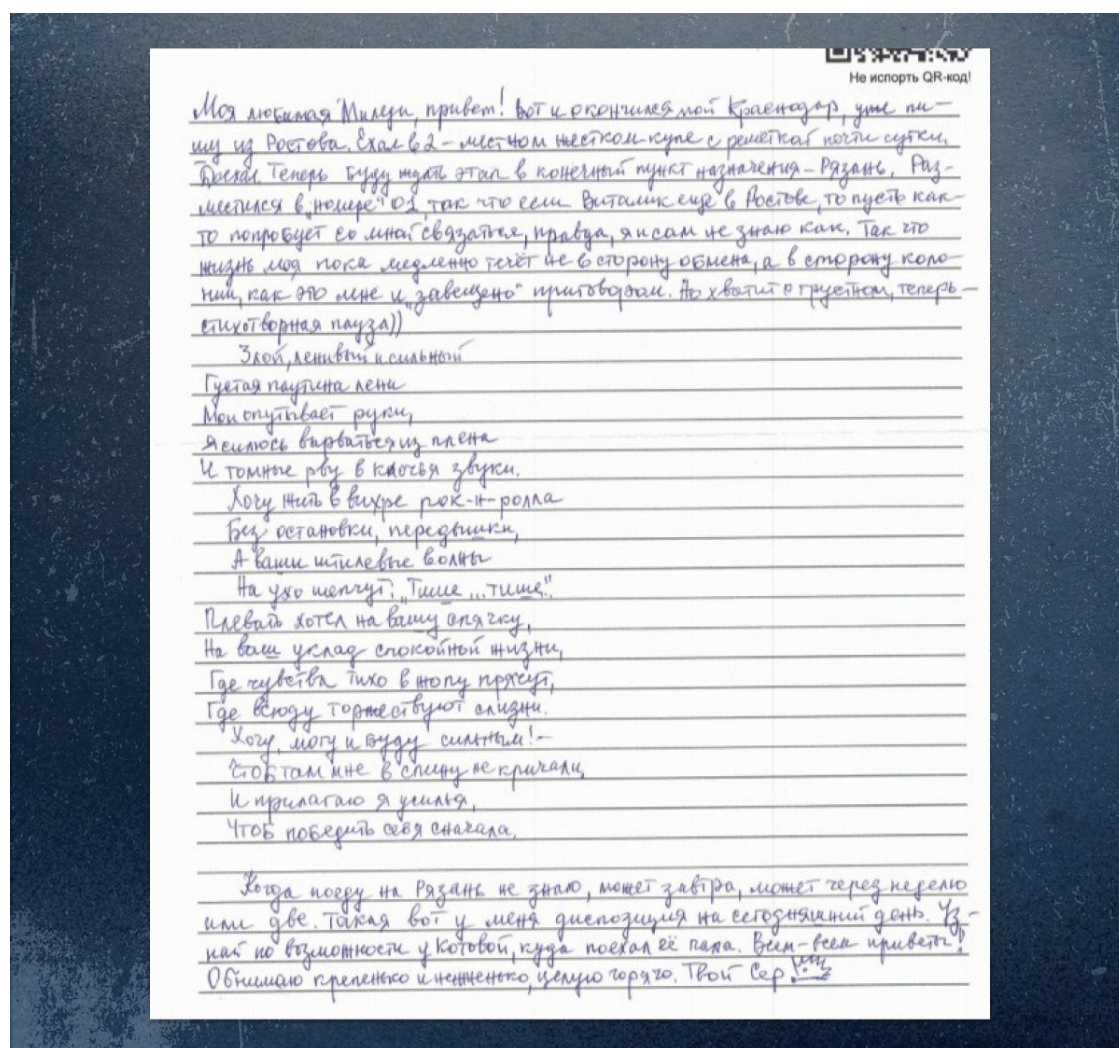 Не испорть QR-код!
Моя любимая Миледи, привет! Вот и окончился мой Краснодар, уже пи-
шу из Ростова. Ехал в 2-местном жестком купе с решеткой почти сутки.
Доехал. Теперь буду ждать этап в конечный пункт назначения - Рязань. Раз-
местился в „номере" 01, так что если Виталик еще в Ростове, то пусть как-
то попробует со мной связаться, правда, я и сам не знаю как. Так что
жизнь моя пока медленно течёт не в сторону обмена, а в сторону коло-
нии, как это мне и „завещено" приговором. Но хватит о грустном, теперь -
стихотворная пауза))
Злой, ленивый и сильный
Густая паутина лени
Мои опутывает руки,
Я силюсь вырваться из плена
И томные рву в клочья звуки.
Хочу жить в вихре рок-н-ролла
Без остановки, передышки,
А ваши штилевые волны
На ухо шепчут: „Тише ... тише".
Плевать хотел на вашу спячку,
На ваш уклад спокойной жизни,
Где чувства тихо в жопу прячут,
Где всюду торжествуют слизни.
Хочу, могу и буду сильным! -
Чтоб там мне в спину не кричали,
И прилагаю я усилья,
Чтоб победить себя сначала.
Когда поеду на Рязань не знаю, может завтра, может через неделю
или две. Такая вот у меня диспозиция на сегодняшний день. Уз-
най по возможности у Котовой, куда поехал её папа. Всем-всем приветы!
Обнимаю крепенько и нежненько, целую горячо. Твой Сер